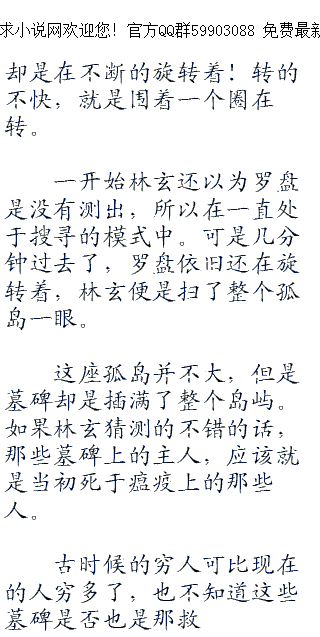 求小说网欢迎您！官方QQ群59903088 免费最新
却是在不断的旋转着！转的
不快，就是围着一个圈在
转。
一开始林玄还以为罗盘
是没有测出，所以在一直处
于搜寻的模式中。可是几分
钟过去了，罗盘依旧还在旋
转着，林玄便是扫了整个孤
岛一眼。
这座孤岛并不大，但是
墓碑却是插满了整个岛屿。
如果林玄猜测的不错的话，
那些墓碑上的主人，应该就
是当初死于瘟疫上的那些
人。
古时候的穷人可比现在
的人穷多了，也不知道这些
墓碑是否也是那救